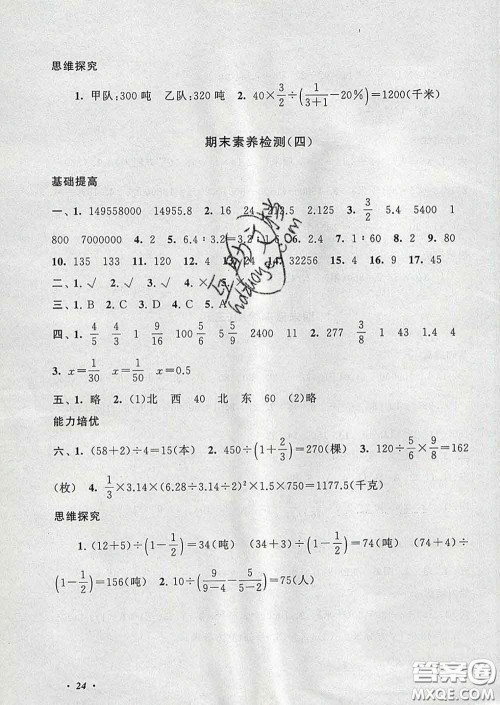 思维探究
1. 甲队:300 吨 乙队:320 吨 2. 40×3/2÷(1/(3+1)−20%)=1200(千米)
期末素养检测(四)
基础提高
一、1. 149558000 14955.8 2. 16 24 12.5 2.125 3. 3/2 5.4 5400 1
800 7000000 4. 2 5. 6.4∶3.2=3.2∶1.6 6. 2 7. 1∶60 8. 2 9. 80
10. 135 133 11. 120 12. 13. 24 14. 32256 15. 4 16. 9 17. 45
二、1. √ 2. √ 3. √ 4. × 5. √
三、1. B 2. C 3. D 4. C 5. A
四、1. 4/5 4/3 1 9/16 100 5/6 5/9 2400 11 2. 277 3/8 1 43 4
3. x=1/30 x=1/50 x=0.5
五、1. 略 2. (1)北 西 40 北 东 60 (2)略
能力培优
六、1. (58+2)÷4=15(本) 2. 450÷(1+2/3)=270(棵) 3. 120÷5/6×9/8=162
(枚) 4. 1/3×3.14×(6.28÷3.14÷2)²×1.5×750=1177.5(千克)
思维探究
1. (12+5)÷(1−1/2)=34(吨) (34+3)÷(1−1/2)=74(吨) (74+4)÷
(1−1/2)=156(吨) 2. 10÷(9/(9−4)−5/(5−2))=75(人)
· 24 ·
答案圈
MXQE.COM